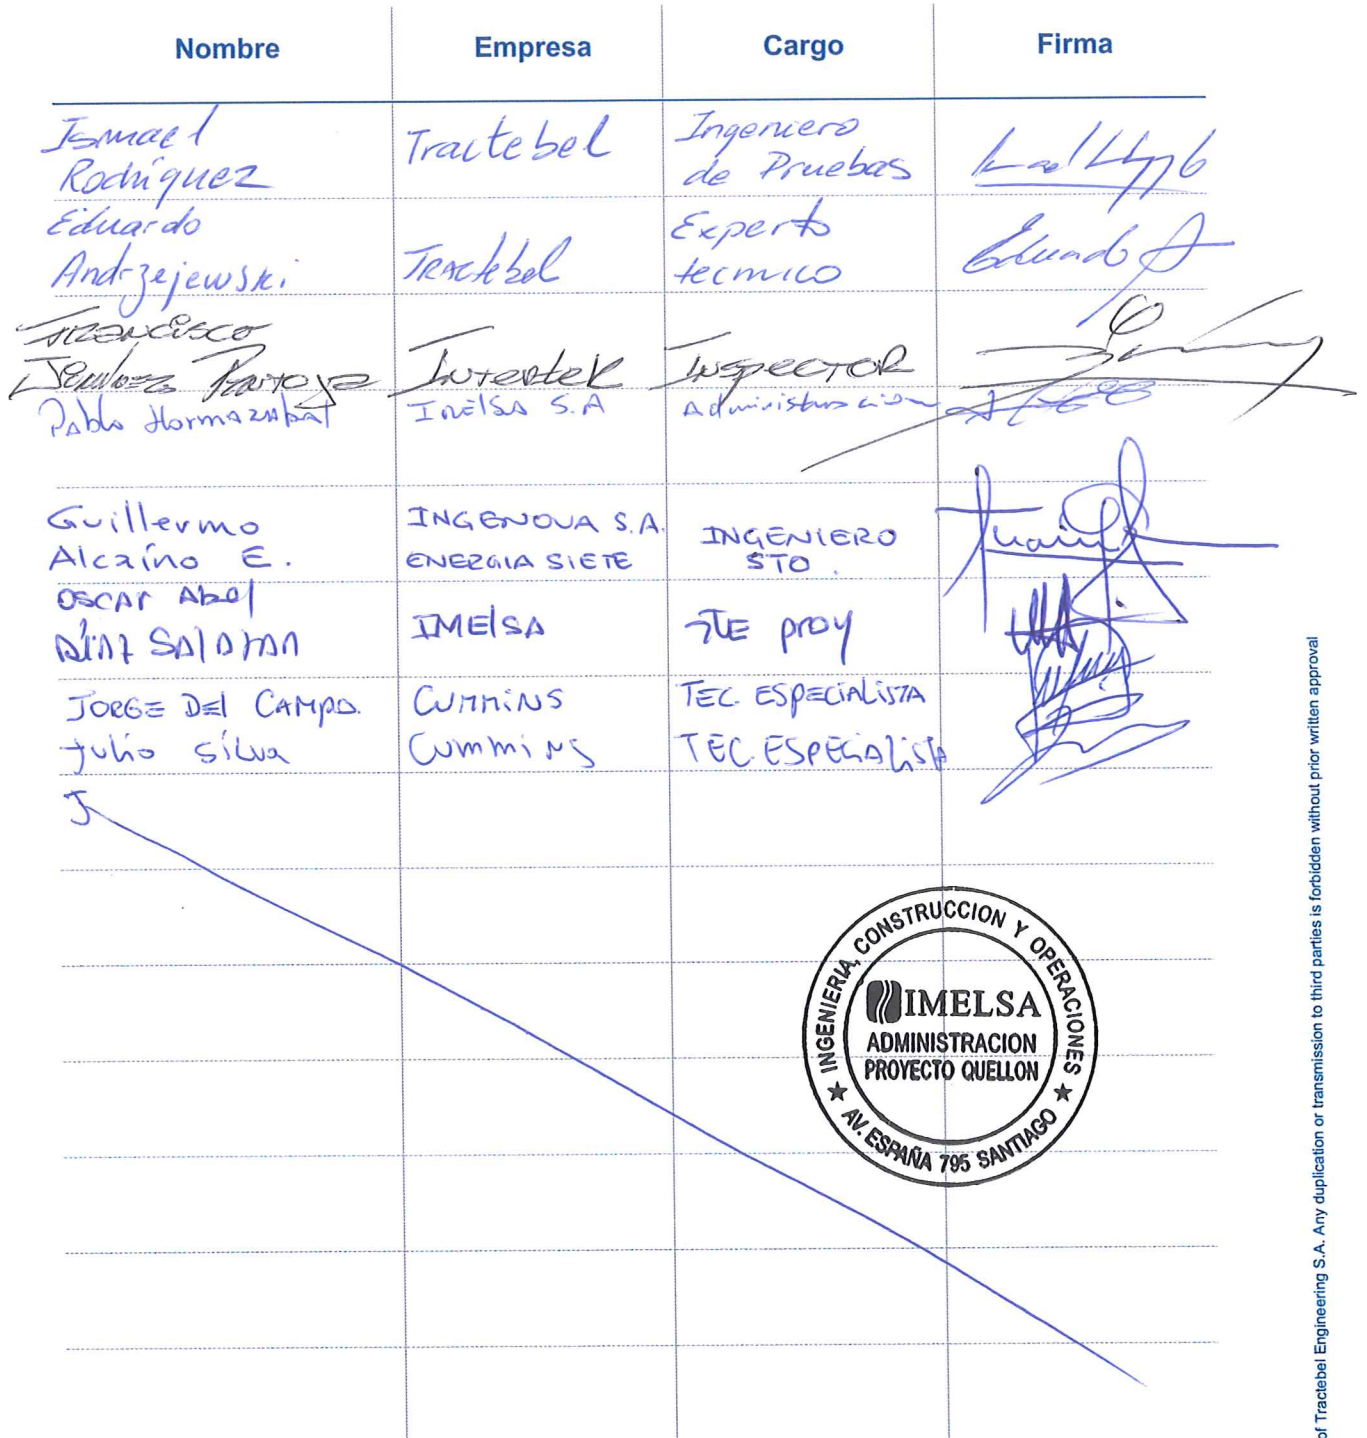 Nombre Empresa Cargo Firma
Ismael
Rodríguez
Tractebel
Ingeniero
de Pruebas
Eduardo
Andrzejewski
Tractebel
Experto
tecnico
Eduardo A
Francisco
Intertek
Inspector
Pablo Hormazabal
IMElSA S.A
Administracion
Guillermo
Alcaíno E.
INGENOVA S.A.
ENERGIA SIETE
INGENIERO
STO.
OSCAR Abel
DÍAZ
IMElSA
proy
JORGE DEl CAMPO.
CUMMINS
TEC. ESPECIALISTA
Julio Silva
Cummins
TEC. ESPECIALISTA
INGENIERIA, CONSTRUCCION Y OPERACIONES
IMELSA
ADMINISTRACION
PROYECTO QUELLON
★ AV. ESPAÑA 795 SANTIAGO ★
of Tractebel Engineering S.A. Any duplication or transmission to third parties is forbidden without prior written approval